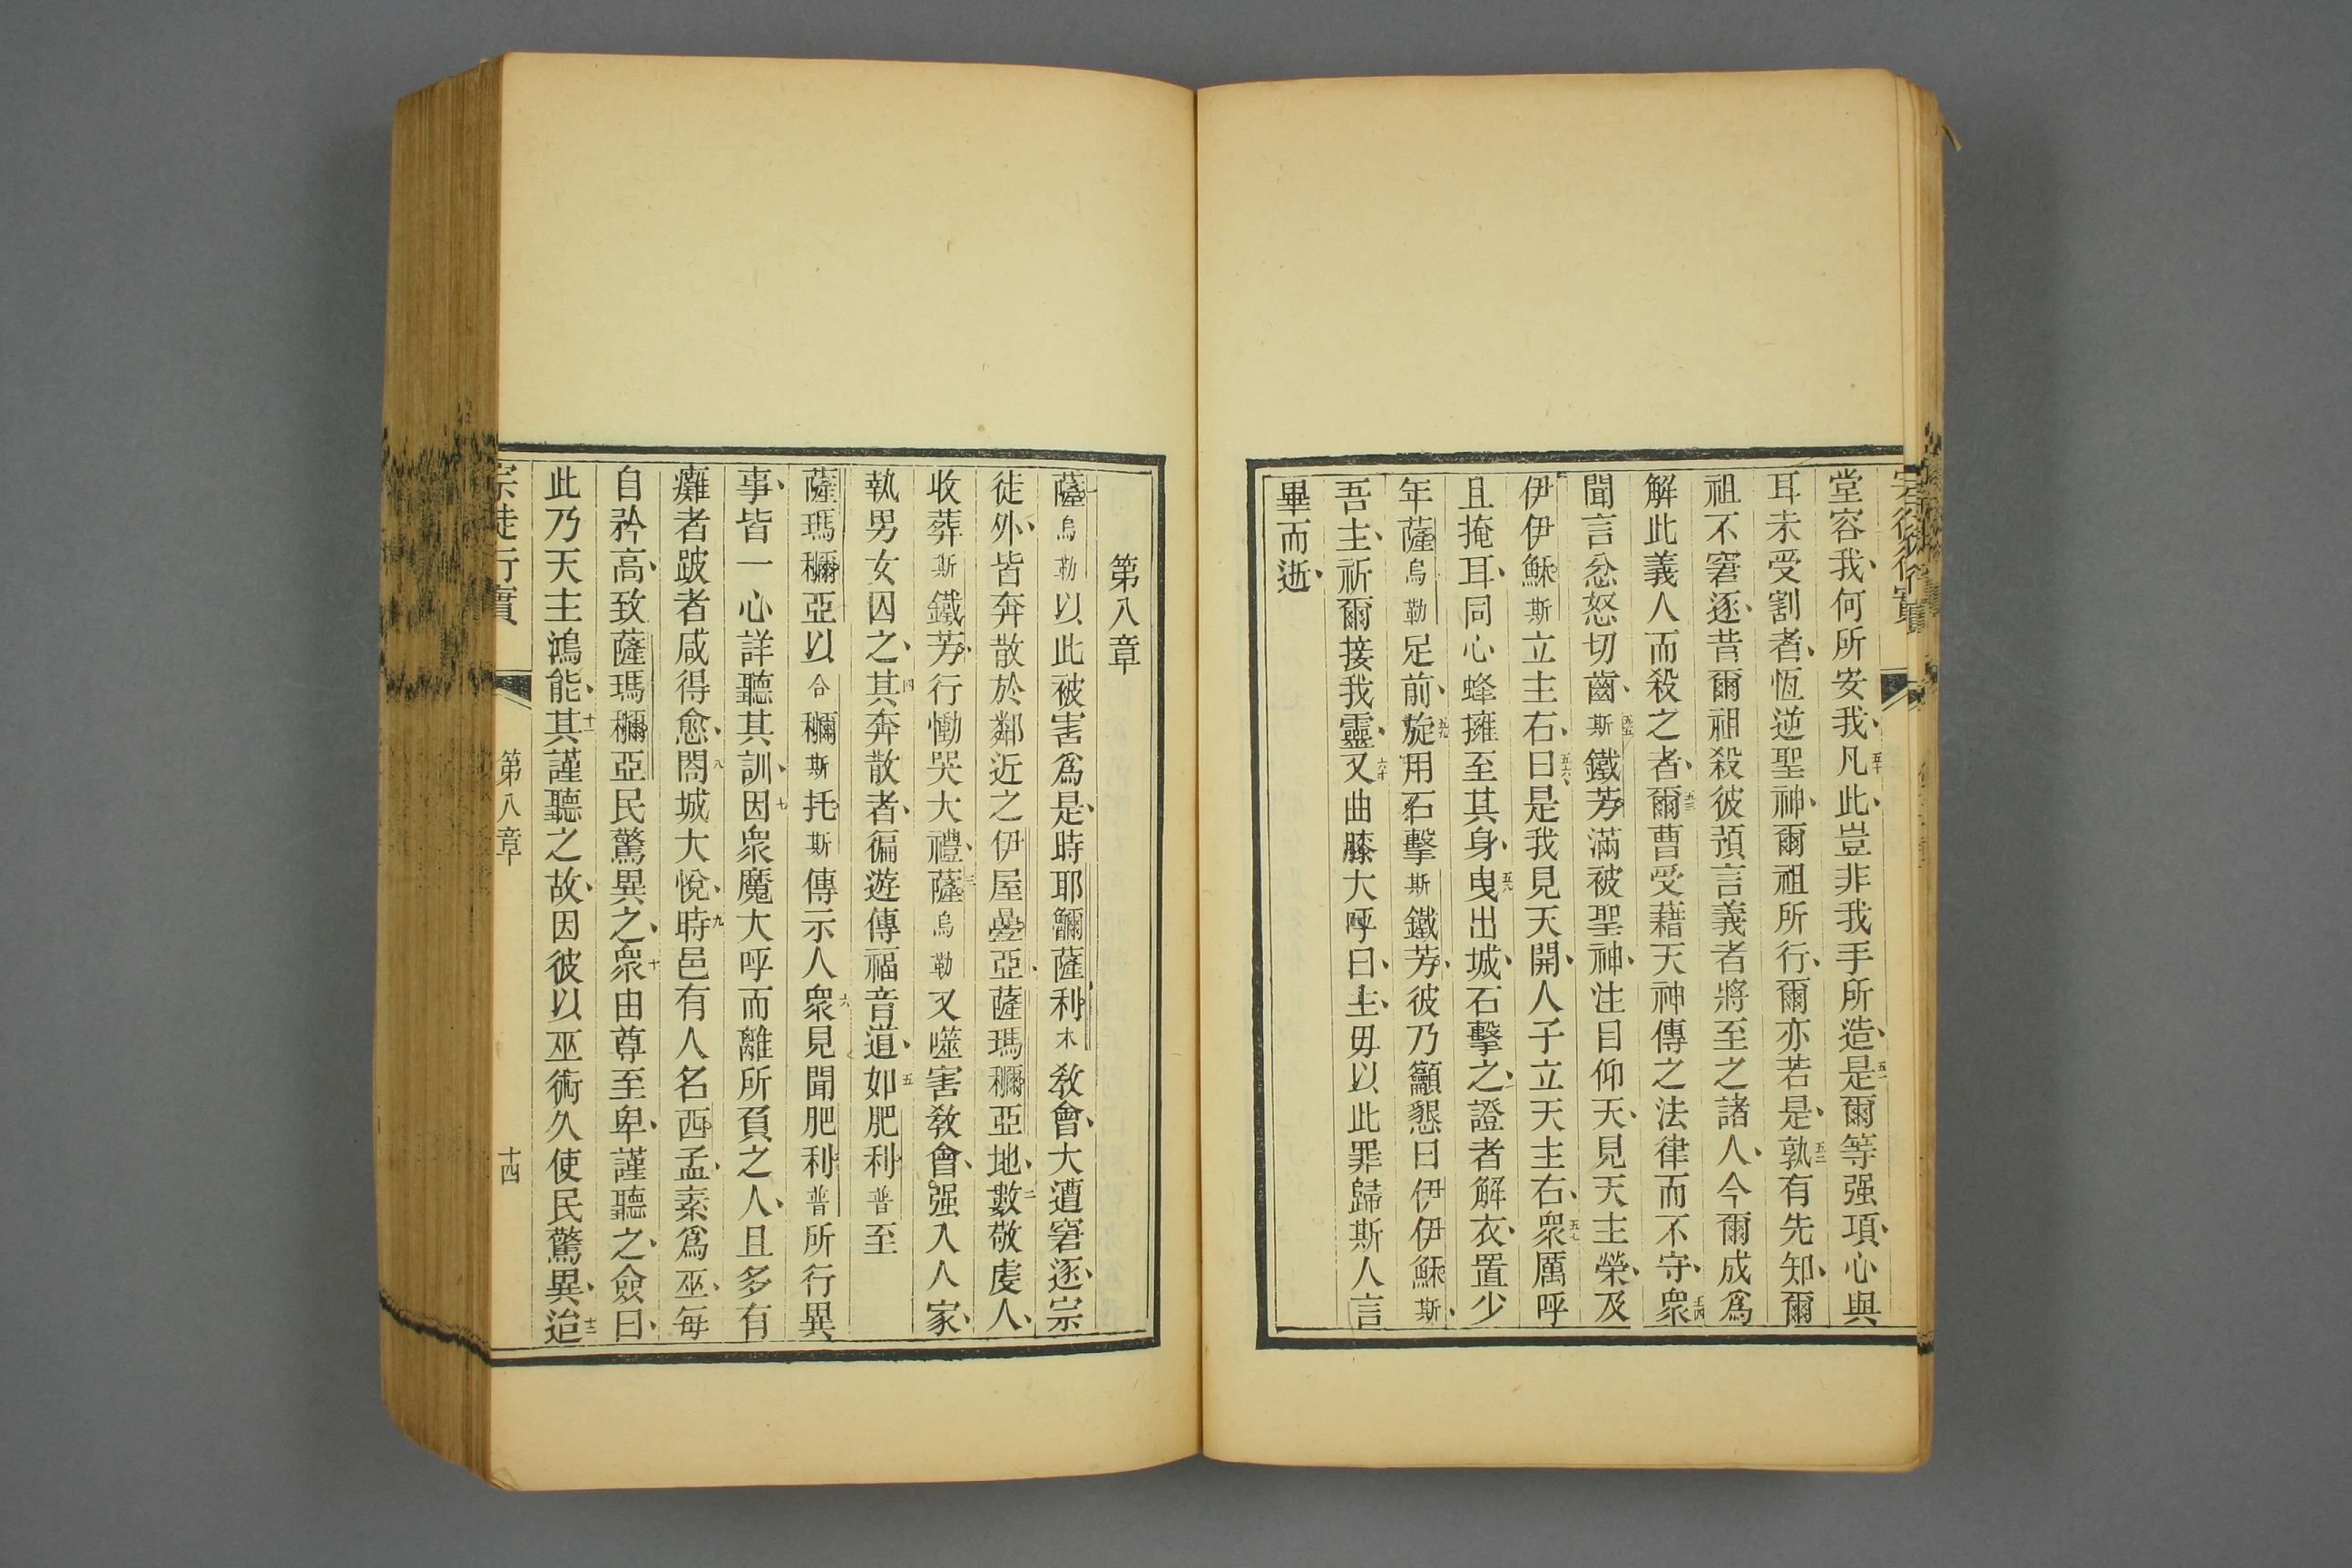 堂容我、何所安我、五十凡此、豈非我手所造、五一是爾等强項、心與
耳未受割者、恆逆聖神、爾祖所行、爾亦若是、五二孰有先知、爾
祖不窘逐、昔爾祖殺彼預言義者將至之諸人、今爾成爲
解此義人而殺之者、五三爾曹受藉天神傳之法律而不守、五四衆
聞言忿怒切齒、五五斯鐵芳滿被聖神、注目仰天、見天主榮、及
伊伊穌斯立主右、五六曰、是我見天開、人子立天主右、五七衆厲呼
且掩耳、同心蜂擁至其身、五八曳出城、石擊之、證者解衣、置少
年薩烏勒足前、五九旋用石擊斯鐵芳、彼乃籲懇曰伊伊穌斯、
吾主、祈爾接我靈、六十又曲膝大呼曰、主、毋以此罪歸斯人、言
畢而逝、
第八章
一薩烏勒以此被害爲是、時耶穪薩利木敎會、大遭窘逐、宗
徒外、皆奔散於鄰近之伊屋疊亞、薩瑪穪亞地、二數敬虔人、
收葬斯鐵芳、行慟哭大禮、三薩烏勒又噬害敎會、强入人家、
執男女囚之、四其奔散者、徧遊傳福音道、五如肥利普至
薩瑪穪亞以合穪斯托斯傳示人、六衆見聞肥利普所行異
事、皆一心詳聽其訓、七因衆魔大呼而離所負之人、且多有
癱者跛者咸得愈、八閤城大悅、九時邑有人名西孟、素爲巫、每
自矜高、致薩瑪穪亞民驚異之、十衆由尊至卑、謹聽之、僉曰、
此乃天主鴻能、十一其謹聽之故、因彼以巫術久使民驚異、十二迨
宗徒行實 第八章 十四